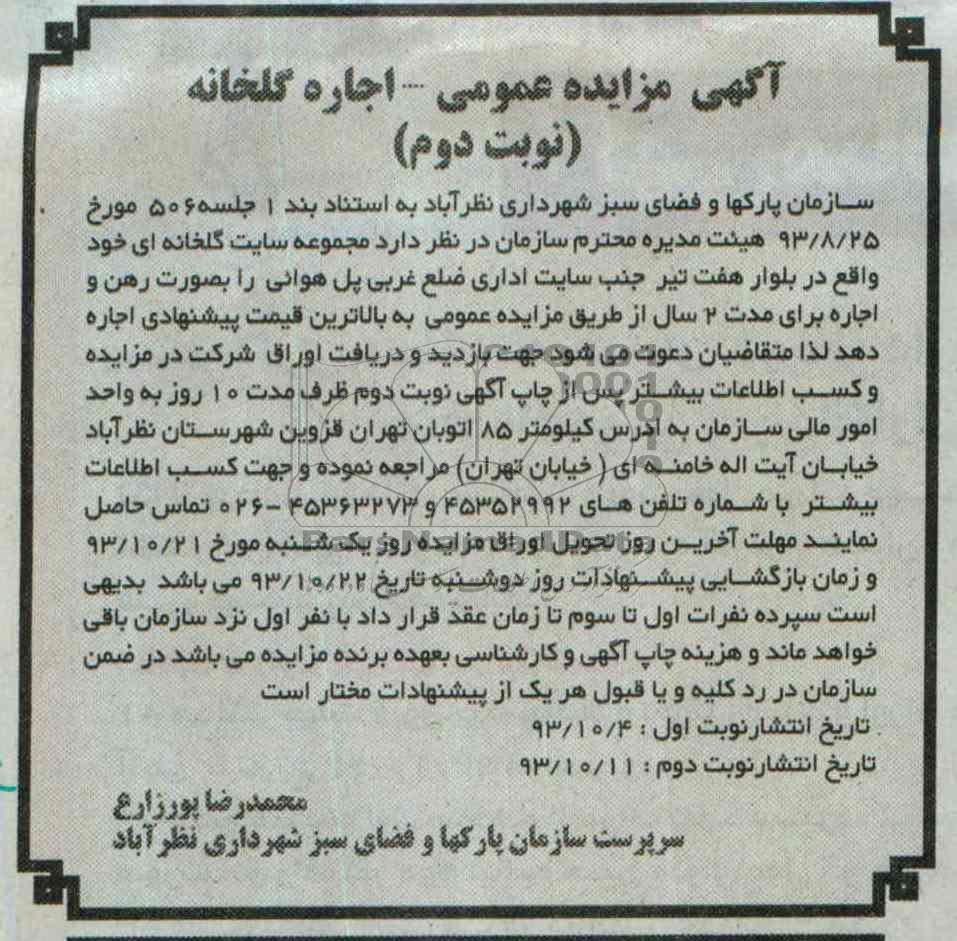 آگهی مزایده عمومی --- اجاره گلخانه
(نوبت دوم)
سازمان پارکها و فضای سبز شهرداری نظرآباد به استناد بند ۱ جلسه۵۰۶ مورخ
۹۳/۸/۲۵ هیئت مدیره محترم سازمان در نظر دارد مجموعه سایت گلخانه ای خود
واقع در بلوار هفت تیر جنب سایت اداری ضلع غربی پل هوائی را بصورت رهن و
اجاره برای مدت ۲ سال از طریق مزایده عمومی به بالاترین قیمت پیشنهادی اجاره
دهد لذا متقاضیان دعوت می شود جهت بازدید و دریافت اوراق شرکت در مزایده
و کسب اطلاعات بیشتر پس از چاپ آگهی نوبت دوم ظرف مدت ۱۰ روز به واحد
امور مالی سازمان به آدرس کیلومتر ۸۵ اتوبان تهران قزوین شهرستان نظرآباد
خیابان آیت اله خامنه ای ( خیابان تهران) مراجعه نموده و جهت کسب اطلاعات
بیشتر با شماره تلفن های ۴۵۳۵۲۹۹۲ و ۴۵۳۶۳۲۷۳ -۰۲۶ تماس حاصل
نمایند مهلت آخرین روز تحویل اوراق مزایده روز یک شنبه مورخ ۹۳/۱۰/۲۱
و زمان بازگشایی پیشنهادات روز دوشنبه تاریخ ۹۳/۱۰/۲۲ می باشد بدیهی
است سپرده نفرات اول تا سوم تا زمان عقد قرار داد با نفر اول نزد سازمان باقی
خواهد ماند و هزینه چاپ آگهی و کارشناسی بعهده برنده مزایده می باشد در ضمن
سازمان در رد کلیه و یا قبول هر یک از پیشنهادات مختار است
تاریخ انتشارنوبت اول : ۹۳/۱۰/۴
تاریخ انتشارنوبت دوم : ۹۳/۱۰/۱۱
محمدرضا پورزارع
سرپرست سازمان پارکها و فضای سبز شهرداری نظرآباد